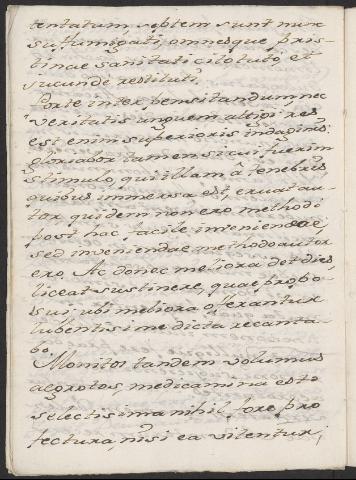 tentatum, septem sunt nunc
suffumigati, omnesque pris-
tinae sanitati cito tuto, et
jucunde restituti.
Forte inter pensitandum, nec
veritatis unquem attigi, res
est enim superioris indaginis:
gloriabor tamen si cui fuerim
stimulo, qui illam â tenebris
quibus immersa est, eruat au-
tor quidem non ero methodi
post hac facile inveniendae,
sed inveniendae methodo autor
ero. Ac donec meliora det dies,
liceat sustinere, quae propo-
sui; ubi meliora offerantur
lubentissime dicta recanta-
bo.
Monitos tandem volumus
aegrotos, medicamina esto
selectissima nihil fore pro
fectura, nisi ea vitentur,